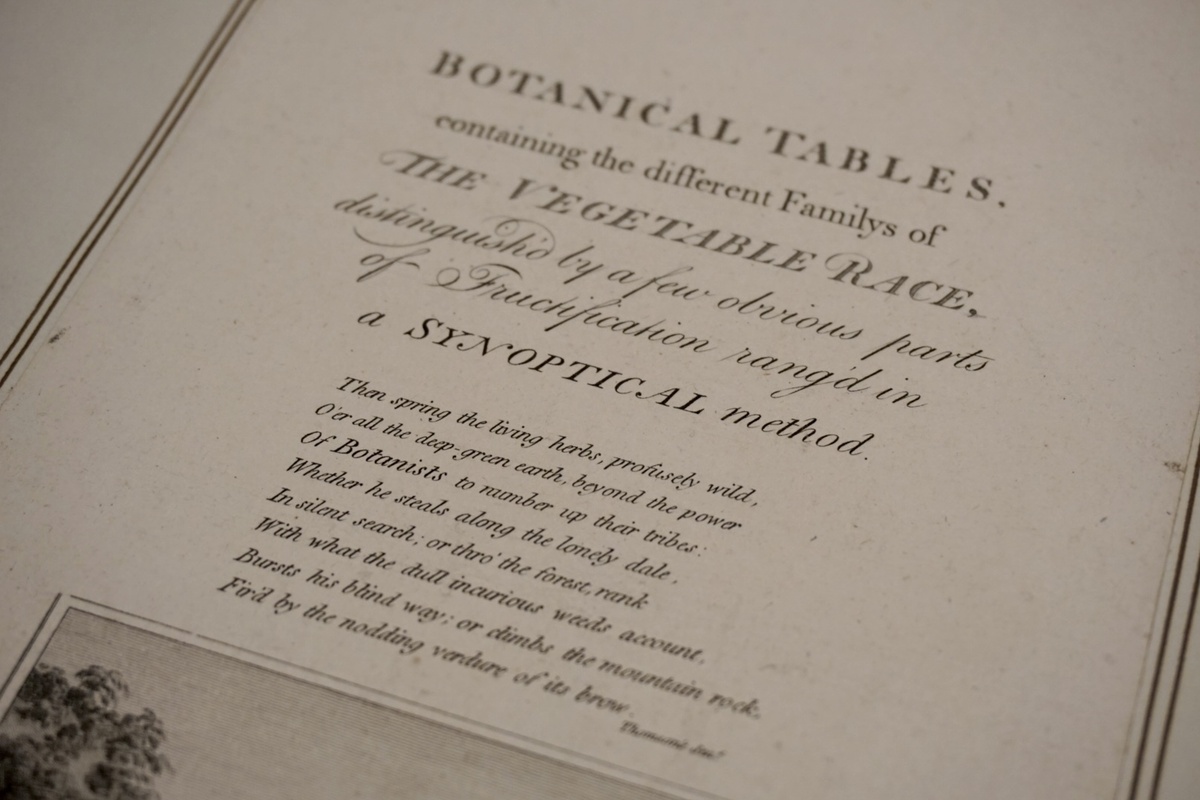 BOTANICAL TABLES.
containing the different Familys of
THE VEGETABLE RACE,
distinguish'd by a few obvious parts
of Fructification rang'd in
a SYNOPTICAL method.
Then spring the living herbs, profusely wild,
O'er all the deep-green earth, beyond the power
Of Botanists to number up their tribes:
Whether he steals along the lonely dale,
In silent search; or thro' the forest, rank
With what the dull incurious weeds account,
Bursts his blind way; or climbs the mountain rock,
Fir'd by the nodding verdure of its brow.